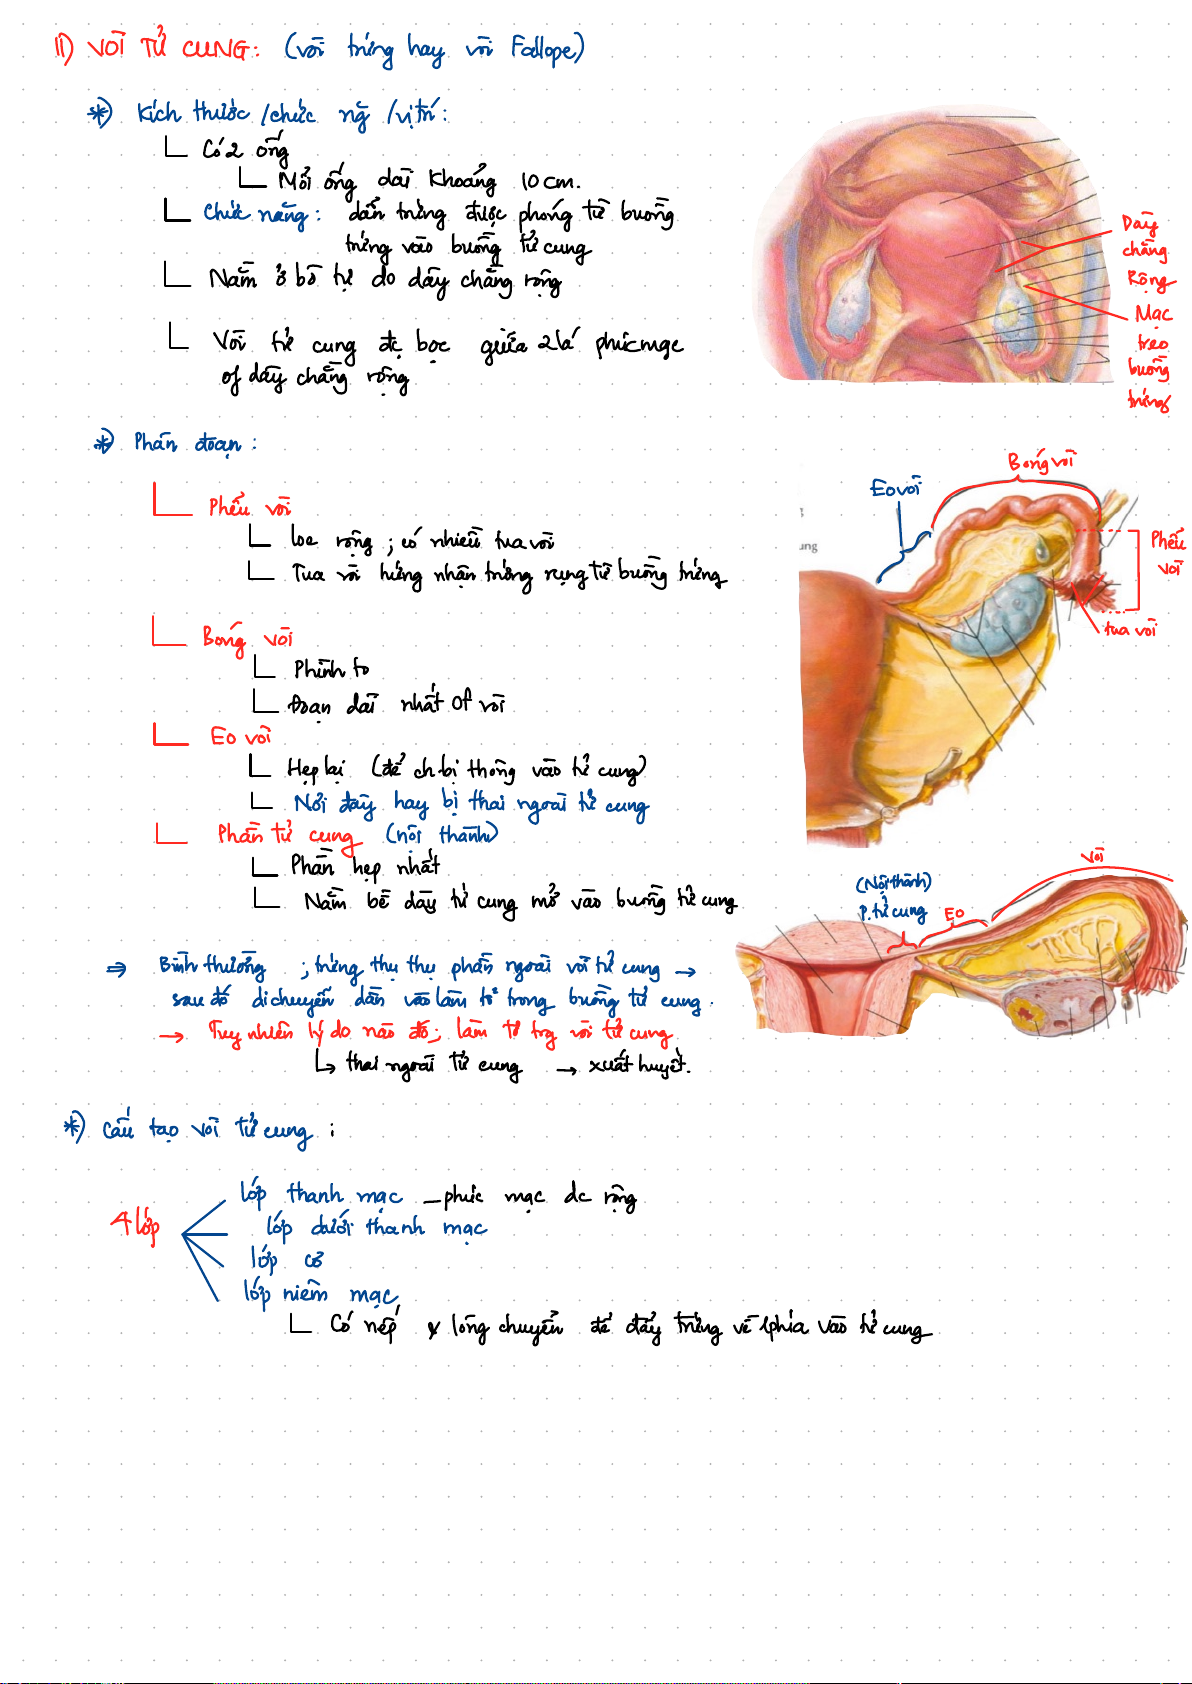 II) VÒI TỬ CUNG: (vòi trứng hay vòi Fallope)
*) Kích thước /chức ng /vị trí:
Có 2 ống
Mỗi ống dài khoảng 10cm.
Chức năng: dẫn trứng được phóng từ buồng
trứng vào buồng tử cung
Nằm ở bờ tự do dây chằng rộng
Vòi tử cung đc bọc giữa 2 lá phúc mạc
of dây chằng rộng
Dây
chằng
Rộng
Mạc
treo
buồng
trứng
*) Phân đoạn:
Phễu vòi
loe rộng ; có nhiều tua vòi
Tua vòi hứng nhận trứng rụng từ buồng trứng
Bóng vòi
Phình to
Đoạn dài nhất of vòi
Eo vòi
Hẹp lại (để ch bị thông vào tử cung)
Nơi đây hay bị thai ngoài tử cung
Phần tử cung (nội thành)
Phần hẹp nhất
Nằm bề dày tử cung mở vào buồng tử cung
Bóng vòi
Eo vòi
ung
Phễu
vòi
tua vòi
Vòi
(Nội thành)
P. tử cung
Eo
⇒ Bình thường ; trứng thụ thụ phần ngoài vòi tử cung →
sau đó di chuyển dần vào làm tổ trong buồng tử cung.
→ Tuy nhiên lý do nào đó; làm tổ trg vòi tử cung
↳ thai ngoài tử cung → xuất huyết.
*) Cấu tạo vòi tử cung :
4 lớp
lớp thanh mạc _ phúc mạc dc rộng
lớp dưới thanh mạc
lớp cơ
lớp niêm mạc
Có nếp & lông chuyển để đẩy trứng về phía vào tử cung